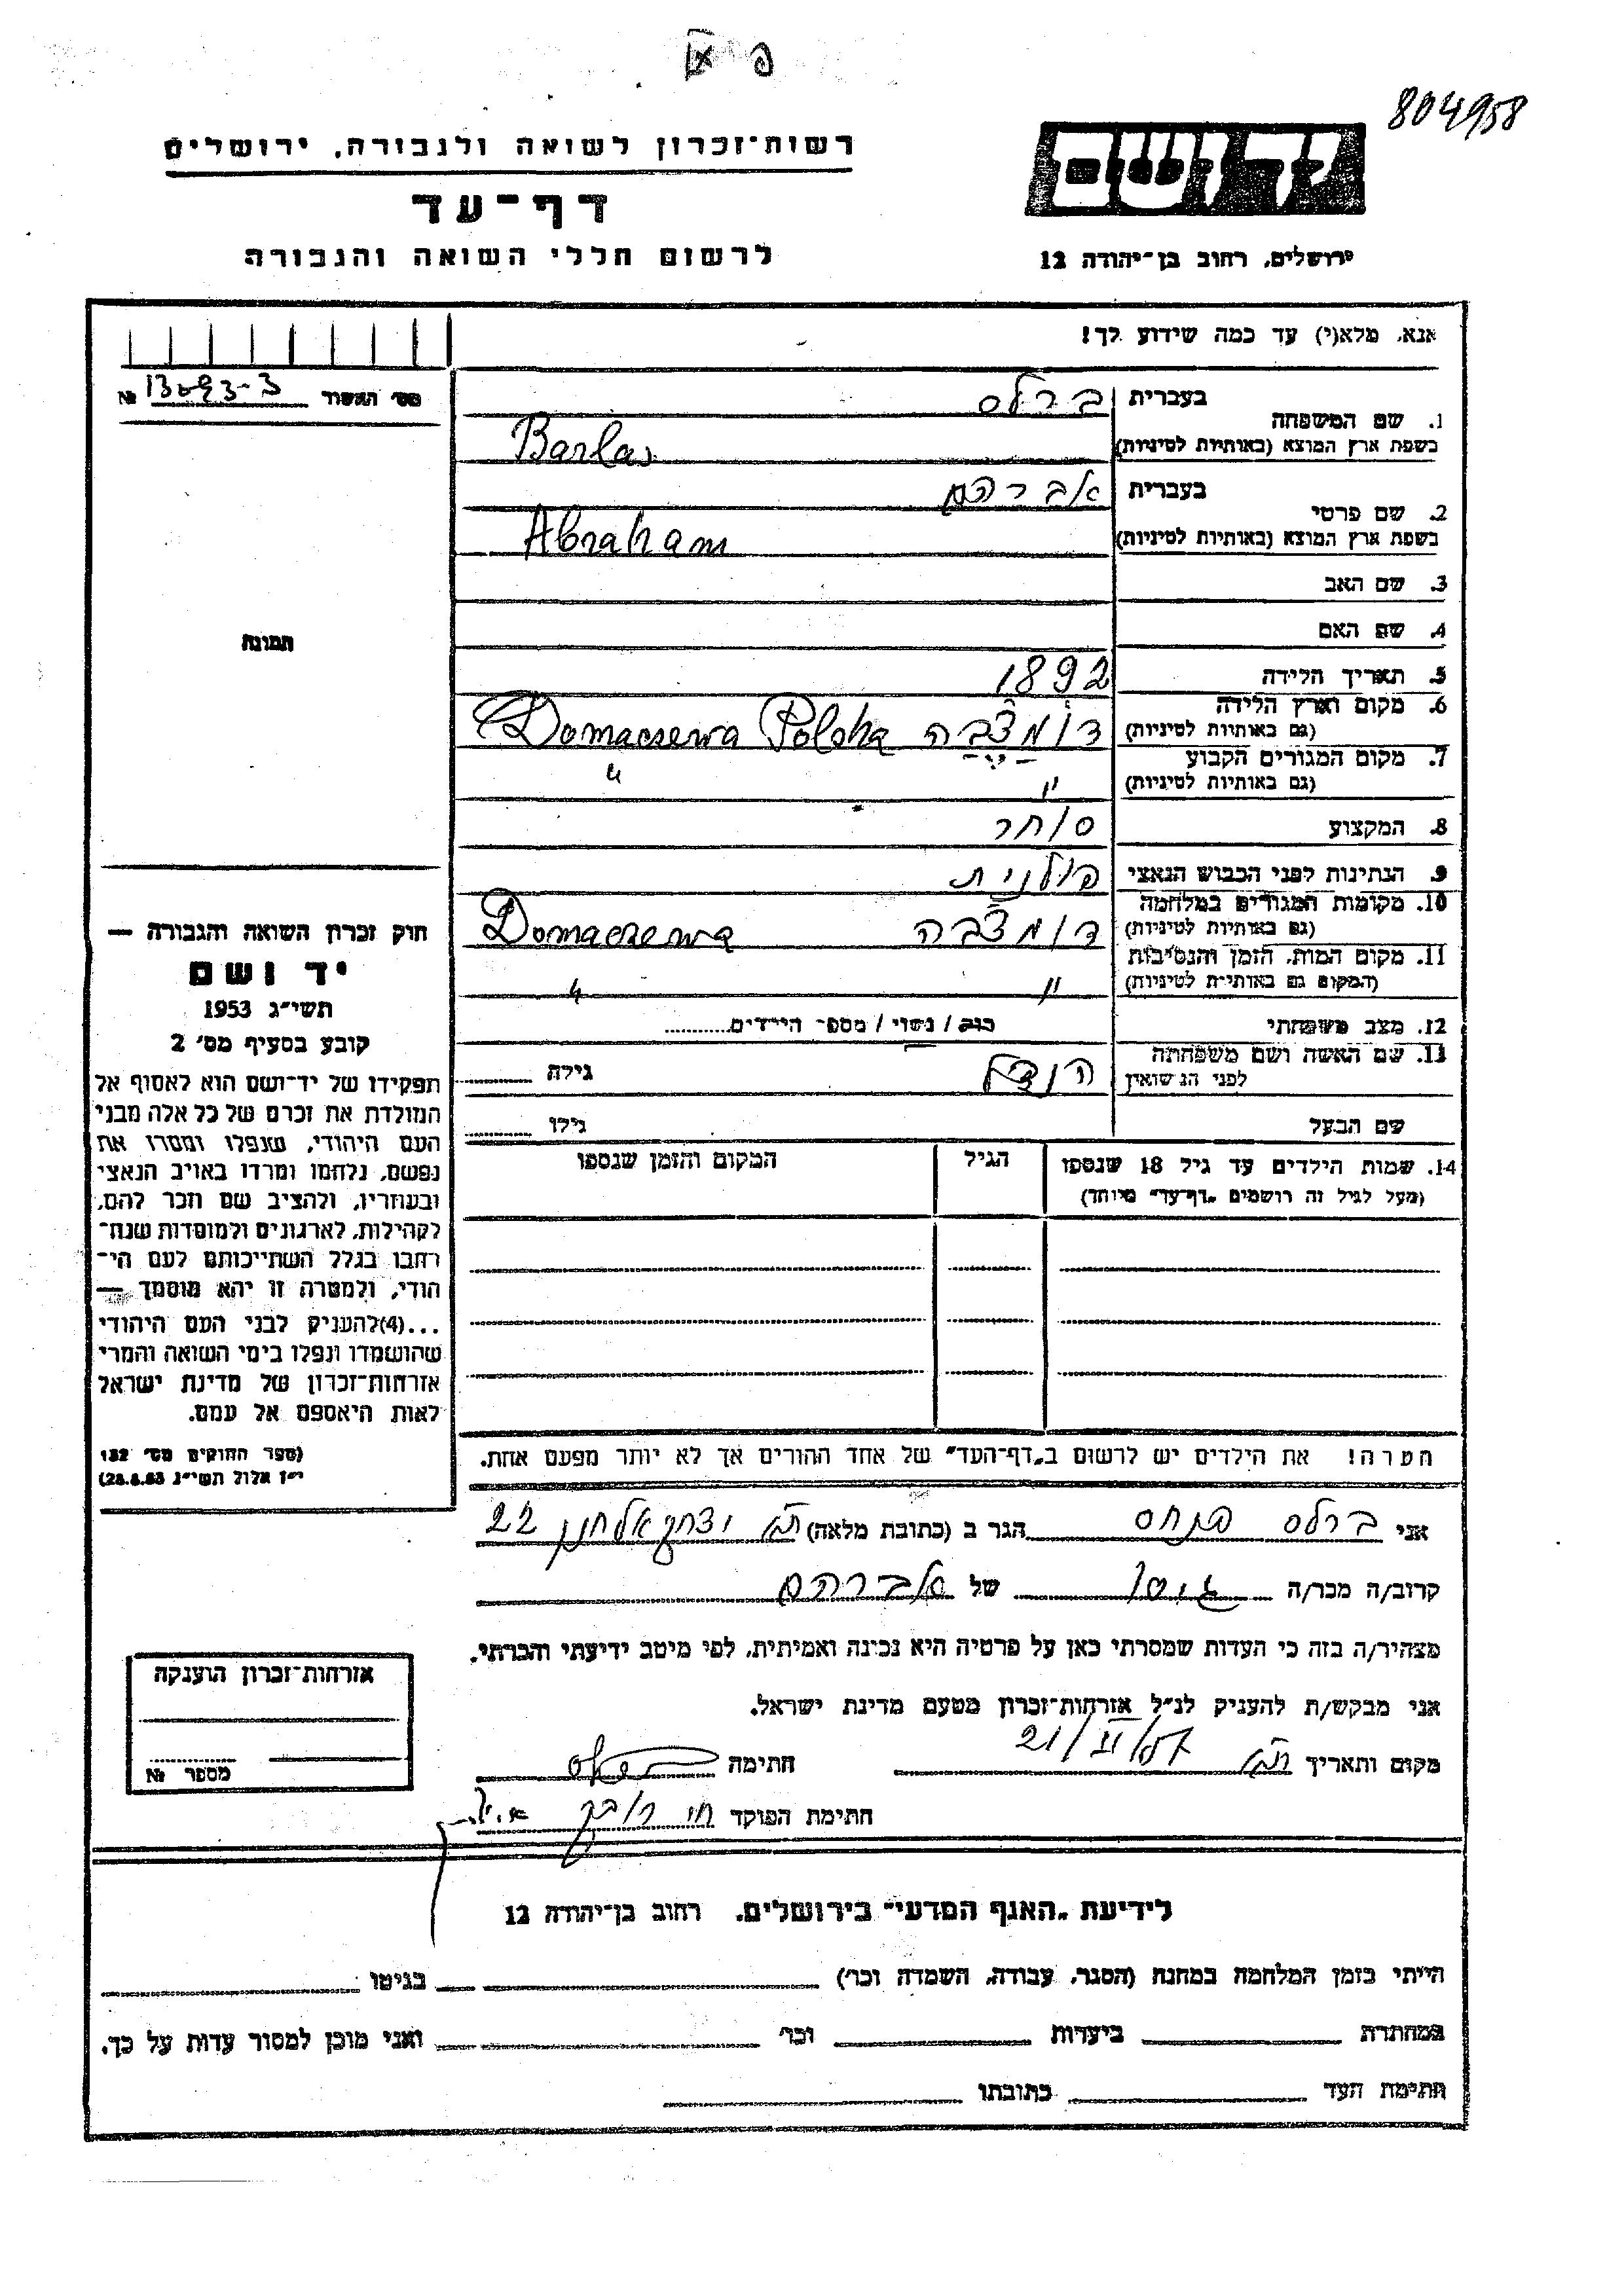 פ א
804958
רשות־זכרון לשואה ולגבורה, ירושלים
דף־עד
לרשום חללי השואה והגבורה
יד ושם
ירושלים, רחוב בן־יהודה 12
אנא, מלא(י) עד כמה שידוע לך!
מס׳ האשור № 13093-3
1. שם המשפחה בעברית ברלס
בשפת ארץ המוצא (באותיות לטיניות) Barlas
2. שם פרטי בעברית אברהם
בשפת ארץ המוצא (באותיות לטיניות) Abraham
3. שם האב
4. שם האם
תמונה
5. תאריך הלידה 1892
6. מקום וארץ הלידה (גם באותיות לטיניות) דומצ׳בה Domacsewa Polska
7. מקום המגורים הקבוע (גם באותיות לטיניות) " "
8. המקצוע סוחר
9. הנתינות לפני הכבוש הנאצי פולנית
10. מקומות המגורים במלחמה (גם באותיות לטיניות) דומצ׳בה Domaczewa
11. מקום המות, הזמן והנסיבות (המקום גם באותיות לטיניות) " "
12. מצב משפחתי רווק / נשוי / מספר הילדים
13. שם האשה ושם משפחתה לפני הנשואין הנדל גילה
שם הבעל גילו
14. שמות הילדים עד גיל 18 שנספו הגיל המקום והזמן שנספו
(מעל לגיל זה רושמים „דף־עד״ מיוחד)
חוק זכרון השואה והגבורה —
יד ושם
תשי״ג 1953
קובע בסעיף מס׳ 2
תפקידו של יד־ושם הוא לאסוף אל
המולדת את זכרם של כל אלה מבני
העם היהודי, שנפלו ומסרו את
נפשם, נלחמו ומרדו באויב הנאצי
ובעוזריו, ולהציב שם וזכר להם,
לקהילות, לארגונים ולמוסדות שנח־
רבו בגלל השתייכותם לעם הי־
הודי, ולמטרה זו יהא מוסמך —
...(4)להעניק לבני העם היהודי
שהושמדו ונפלו בימי השואה והמרי
אזרחות־זכרון של מדינת ישראל
לאות היאספם אל עמם.
(ספר החוקים מס׳ 132
י״ז אלול תשי״ג 28.8.53)
הערה! את הילדים יש לרשום ב„דף־העד״ של אחד ההורים אך לא יותר מפעם אחת.
אני ברלס פנחס הגר ב (כתובת מלאה) ת״א יצחק אלחנן 22
קרוב/ה מכר/ה גיסו של אברהם
מצהיר/ה בזה כי העדות שמסרתי כאן על פרטיה היא נכונה ואמיתית, לפי מיטב ידיעתי והכרתי.
אני מבקש/ת להעניק לנ״ל אזרחות־זכרון מטעם מדינת ישראל.
מקום ותאריך ת״א 21/II חתימה
חתימת הפוקד
אזרחות־זכרון הוענקה
מספר №
לידיעת „האגף המדעי״ בירושלים, רחוב בן־יהודה 12
הייתי בזמן המלחמה במחנה (הסגר, עבודה, השמדה וכו׳) בגיטו
במחתרת ביערות וכו׳ ואני מוכן למסור עדות על כך.
חתימת העד כתובתו